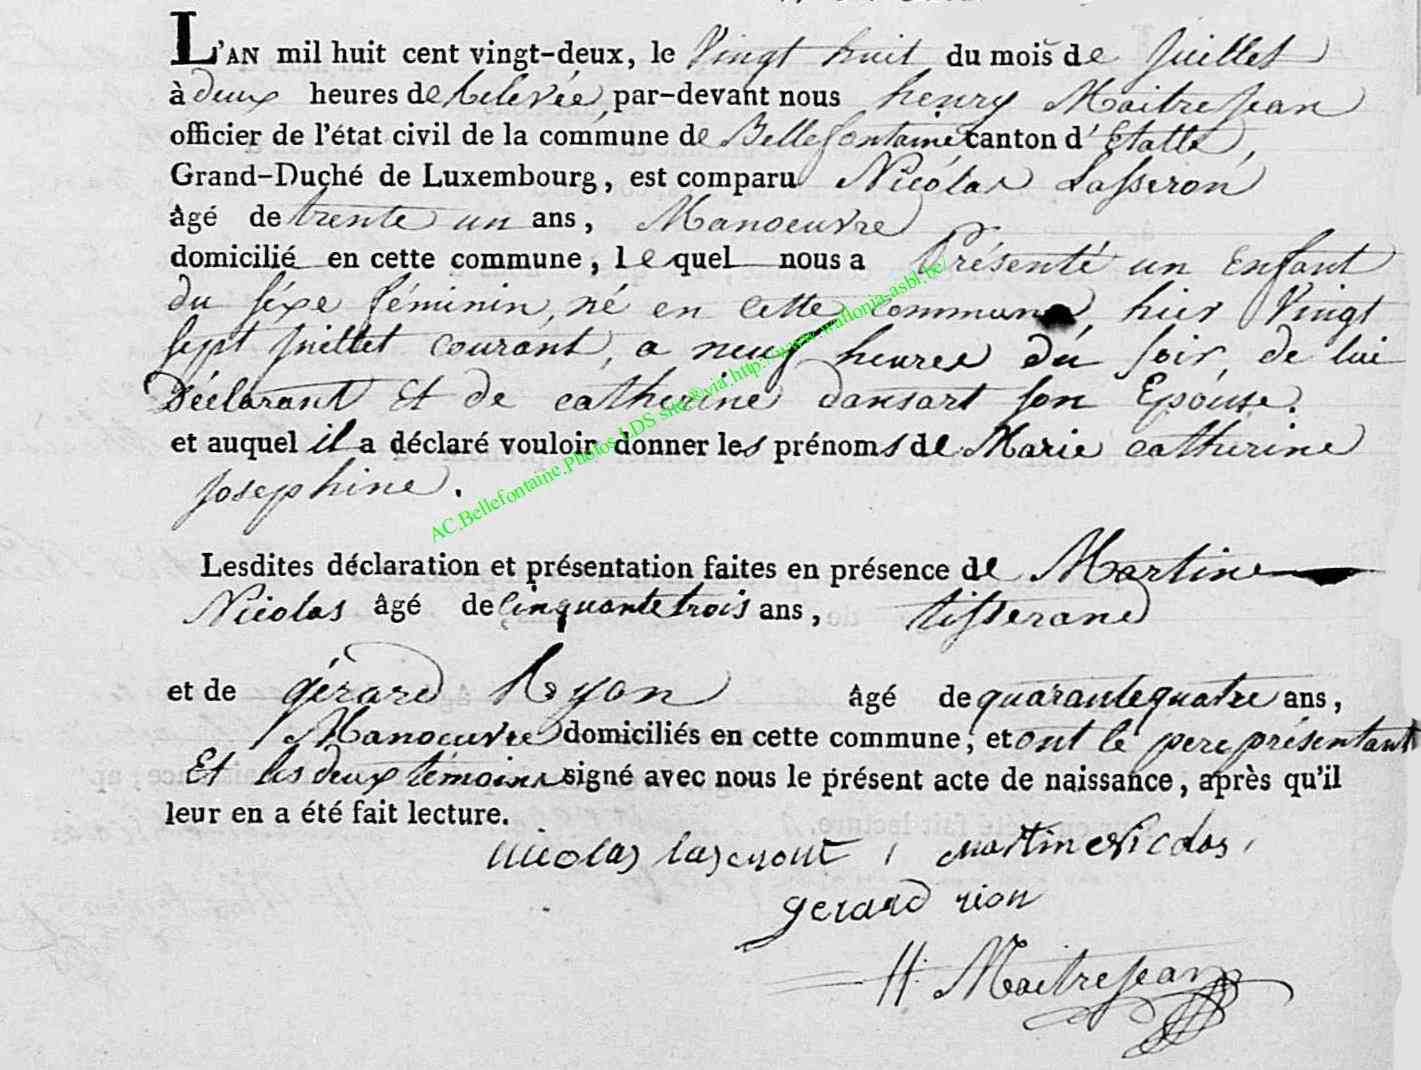 L'AN mil huit cent vingt-deux, le Vingt huit du mois de Juillet
à deux heures de Relevée, par-devant nous henry Maitrejean
officier de l'état civil de la commune de Bellefontaine canton d'Etalle,
Grand-Duché de Luxembourg, est comparu Nicolas Lasseron
âgé de trente un ans, Manoeuvre
domicilié en cette commune, lequel nous a Présenté un Enfant
du séxe féminin, né en cette commune, hier Vingt
sept Juillet courant, a neuf heures du soir, de lui
Déclarant Et de catherine dansart son Epouse.
et auquel il a déclaré vouloir donner les prénoms de Marie catherine
josephine.
Lesdites déclaration et présentation faites en présence de Martin
Nicolas âgé de cinquante trois ans, tisserand
et de gérard Ryon âgé de quarante quatre ans,
Manoeuvre domiciliés en cette commune, et ont le pere présentant
Et les deux témoins signé avec nous le présent acte de naissance, après qu'il
leur en a été fait lecture.
nicolas martin Nicolas
gerard rion
H. Maitrejean
AC.Bellefontaine.Photos LDS site via http://www.wallonia-asbl.be/